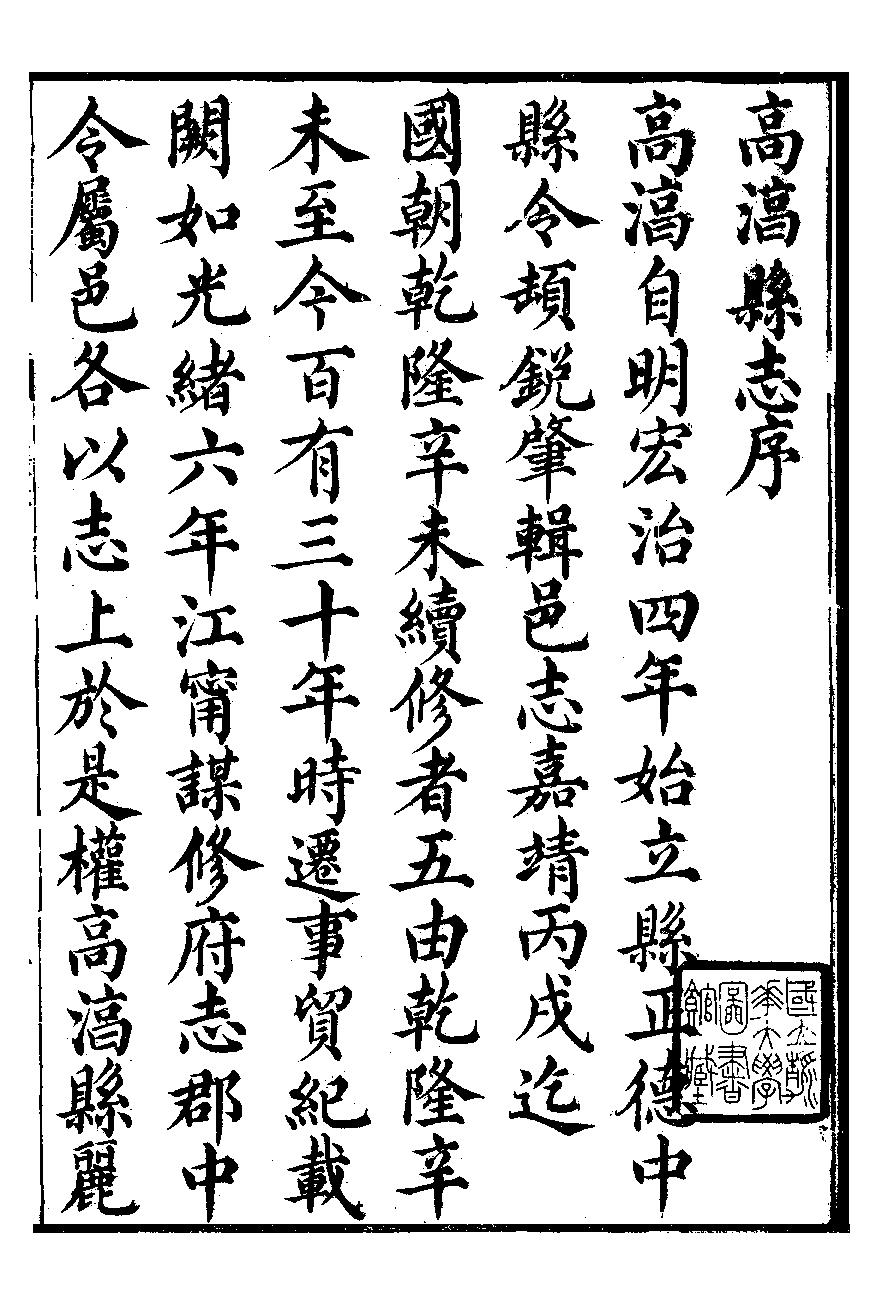 高湻縣志序
高湻自明宏治四年始立縣正德中
縣令頓銳肇輯邑志嘉靖丙戌迄
國朝乾隆辛未續修者五由乾隆辛
未至今百有三十年時遷事貿紀載
闕如光緒六年江甯謀修府志郡中
令屬邑各以志上於是權高湻縣麗
國立
華大學
圖書
館藏